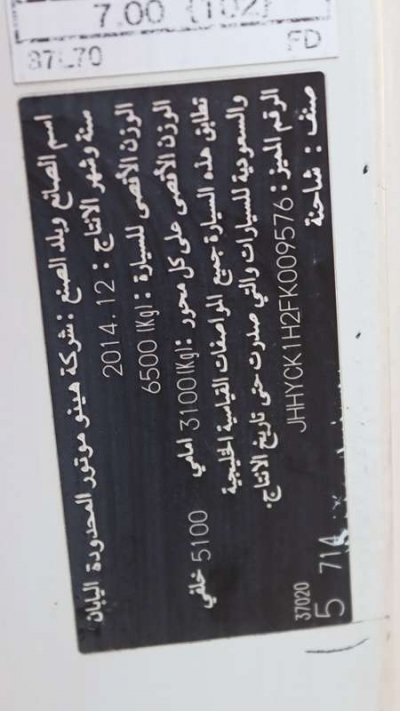 7.00 (102)
87L70 FD
اسم الصانع وبلد الصنع : شركة هينو موتور المحدودة اليابان
سنة وشهر الانتاج : 2014.12
الوزن الأقصى للسيارة : 6500 (Kg)
الوزن الأقصى على كل محور : 3100(Kg) امامي 5100 خلفي
تطابق هذه السيارة جميع المواصفات القياسية الخليجية
والسعودية للسيارات والتي صدرت حتى تاريخ الانتاج.
الرقم المميز : JHHYCK1H2FK009576
صنف : شاحنة
37020
5 714